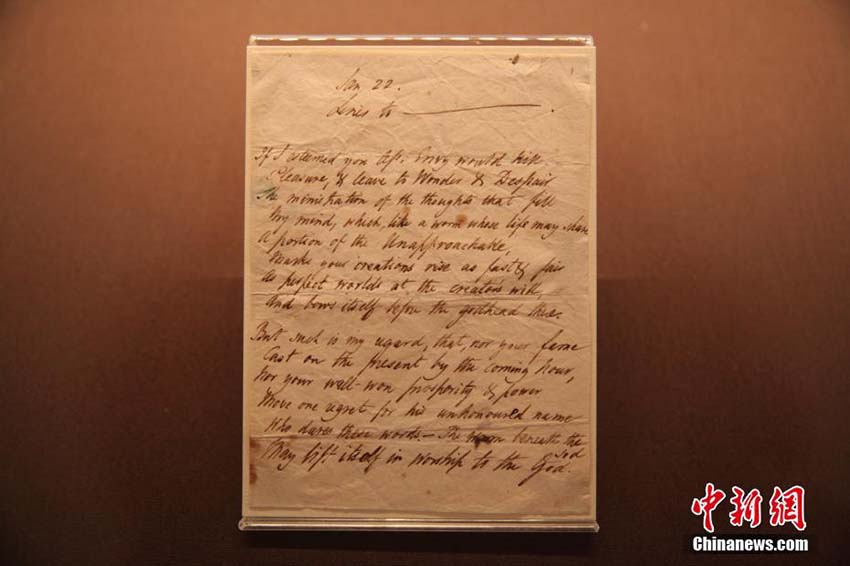 Jan 22.
Lines to ———.
If I esteemed you less, Envy would kill
Pleasure, & leave to Wonder & Despair
The ministration of the thoughts that fill
My mind, which, like a worm whose life may share
A portion of the Unapproachable,
Marks your creations rise as fast & fair
As perfect worlds at the creators will,
And bows itself before the godhead there.
But such is my regard, that, nor your fame
Cast on the present by the coming hour,
Nor your well-won prosperity & power
Move one regret for his unhonoured name
Who dares these words.— The worm beneath the sod
May lift itself in worship to the God.
中新网
Chinanews.com